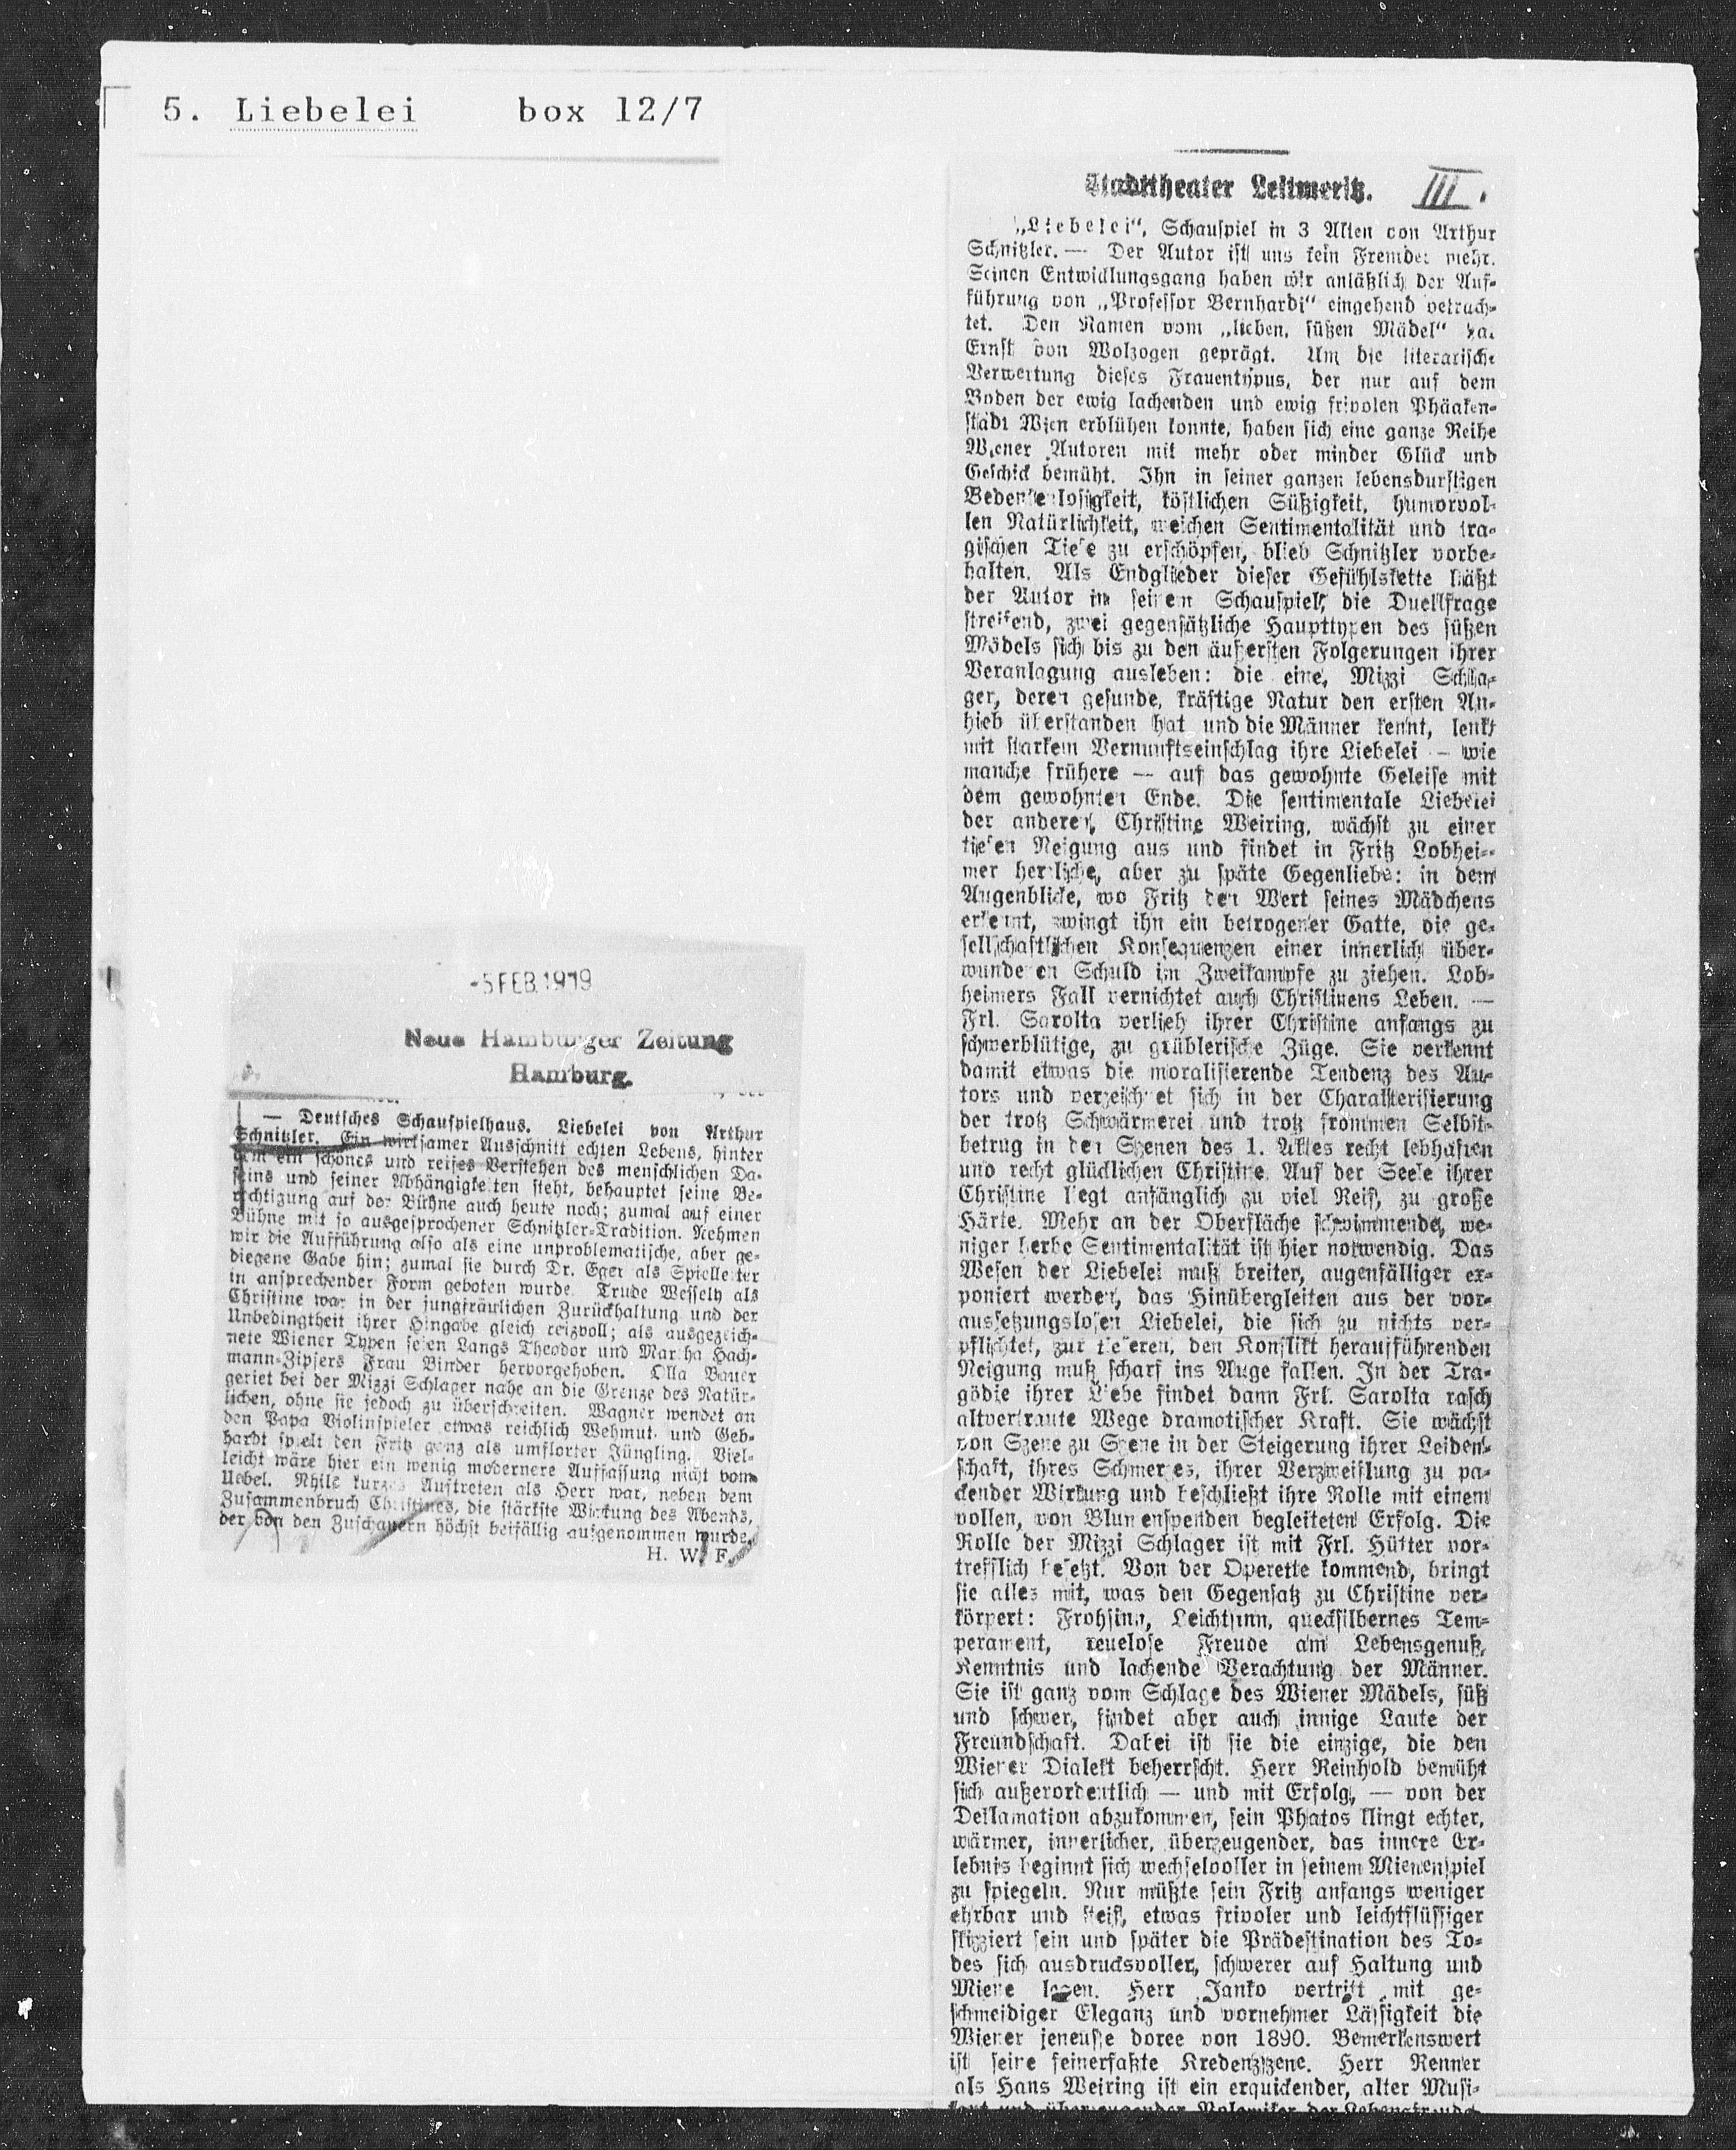 5. Liebelei box 12/7
-5 FEB. 1919
Neue Hamburger Zeitung
Hamburg.
— Deutsches Schauspielhaus. Liebelei von Arthur
Schnitzler. Ein wirksamer Ausschnitt echten Lebens, hinter
dem ein schönes und reifes Verstehen des menschlichen Da-
seins und seiner Abhängigkeiten steht, behauptet seine Be-
rechtigung auf der Bühne auch heute noch; zumal auf einer
Bühne mit so ausgesprochener Schnitzler-Tradition. Nehmen
wir die Aufführung also als eine unproblematische, aber ge-
diegene Gabe hin; zumal sie durch Dr. Eger als Spielleiter
in ansprechender Form geboten wurde. Trude Wessely als
Christine war in der jungfräulichen Zurückhaltung und der
Unbedingtheit ihrer Hingabe gleich reizvoll; als ausgezeich-
nete Wiener Typen seien Langs Theodor und Martha Hach-
mann-Zipsers Frau Binder hervorgehoben. Olla Bauer
geriet bei der Mizzi Schlager nahe an die Grenze des Natür-
lichen, ohne sie jedoch zu überschreiten. Wagner wendet an
den Papa Violinspieler etwas reichlich Wehmut, und Geb-
hardt spielt den Fritz ganz als umflorter Jüngling. Viel-
leicht wäre hier ein wenig modernere Auffassung nicht vom
Uebel. Nhils kurzes Auftreten als Herr war, neben dem
Zusammenbruch Christines, die stärkste Wirkung des Abends,
der von den Zuschauern höchst beifällig aufgenommen wurde.
H. W. F.
Stadttheater Leitmeritz. III.
„Liebelei“, Schauspiel in 3 Akten von Arthur
Schnitzler. — Der Autor ist uns kein Fremder mehr.
Seinen Entwicklungsgang haben wir anläßlich der Auf-
führung von „Professor Bernhardi“ eingehend betrach-
tet. Den Namen vom „lieben, süßen Mädel“ ha.
Ernst von Wolzogen geprägt. Um die literarische
Verwertung dieses Frauentypus, der nur auf dem
Boden der ewig lachenden und ewig frivolen Phäaken-
stadt Wien erblühen konnte, haben sich eine ganze Reihe
Wiener Autoren mit mehr oder minder Glück und
Geschick bemüht. Ihn in seiner ganzen lebensdurstigen
Bedenkenlosigkeit, köstlichen Süßigkeit, humorvol-
len Natürlichkeit, weichen Sentimentalität und tra-
gischen Tiefe zu erschöpfen, blieb Schnitzler vorbe-
halten. Als Endglieder dieser Gefühlskette läßt
der Autor in seinem Schauspiel, die Duellfrage
streifend, zwei gegensätzliche Haupttypen des süßen
Mädels sich bis zu den äußersten Folgerungen ihrer
Veranlagung ausleben: die eine, Mizzi Schla-
ger, deren gesunde, kräftige Natur den ersten An-
hieb überstanden hat und die Männer kennt, lenkt
mit starkem Vernunftseinschlag ihre Liebelei — wie
manche frühere — auf das gewohnte Geleise mit
dem gewohnten Ende. Die sentimentale Liebelei
der anderen, Christine Weiring, wächst zu einer
tiefen Neigung aus und findet in Fritz Lobhei-
mer herzliche, aber zu späte Gegenliebe: in dem
Augenblicke, wo Fritz den Wert seines Mädchens
erkennt, zwingt ihn ein betrogener Gatte, die ge-
sellschaftlichen Konsequenzen einer innerlich über-
wundenen Schuld im Zweikampfe zu ziehen. Lob-
heimers Fall vernichtet auch Christinens Leben. —
Frl. Sarolta verlieh ihrer Christine anfangs zu
schwerblütige, zu grüblerische Züge. Sie verkennt
damit etwas die moralisierende Tendenz des Au-
tors und verzeichnet sich in der Charakterisierung
der trotz Schwärmerei und trotz frommen Selbst-
betrug in den Szenen des 1. Aktes recht lebhaften
und recht glücklichen Christine. Auf der Seele ihrer
Christine liegt anfänglich zu viel Reif, zu große
Härte. Mehr an der Oberfläche schwimmende, we-
niger herbe Sentimentalität ist hier notwendig. Das
Wesen der Liebelei muß breiter, augenfälliger ex-
poniert werden, das Hinübergleiten aus der vor-
aussetzungslosen Liebelei, die sich zu nichts ver-
pflichtet, zur tieferen, den Konflikt heraufführenden
Neigung muß scharf ins Auge fallen. In der Tra-
gödie ihrer Liebe findet dann Frl. Sarolta rasch
altvertraute Wege dramatischer Kraft. Sie wächst
von Szene zu Szene in der Steigerung ihrer Leiden-
schaft, ihres Schmerzes, ihrer Verzweiflung zu pa-
ckender Wirkung und beschließt ihre Rolle mit einem
vollen, von Blumenspenden begleiteten Erfolg. Die
Rolle der Mizzi Schlager ist mit Frl. Hütter vor-
trefflich besetzt. Von der Operette kommend, bringt
sie alles mit, was den Gegensatz zu Christine ver-
körpert: Frohsinn, Leichtsinn, quecksilbernes Tem-
perament, reuelose Freude am Lebensgenuß,
Kenntnis und lachende Verachtung der Männer.
Sie ist ganz vom Schlage des Wiener Mädels, süß
und schwer, findet aber auch innige Laute der
Freundschaft. Dabei ist sie die einzige, die den
Wiener Dialekt beherrscht. Herr Reinhold bemüht
sich außerordentlich — und mit Erfolg, — von der
Deklamation abzukommen, sein Phatos klingt echter,
wärmer, innerlicher, überzeugender, das innere Er-
lebnis beginnt sich wechselvoller in seinem Mienenspiel
zu spiegeln. Nur müßte sein Fritz anfangs weniger
ehrbar und steif, etwas frivoler und leichtflüssiger
skizziert sein und später die Prädestination des To-
des sich ausdrucksvoller, schwerer auf Haltung und
Miene legen. Herr Janko vertritt mit ge-
schmeidiger Eleganz und vornehmer Lässigkeit die
Wiener jeneusse doree von 1890. Bemerkenswert
ist seine feinerfaßte Kredenzszene. Herr Renner
als Hans Weiring ist ein erquickender, alter Musi-